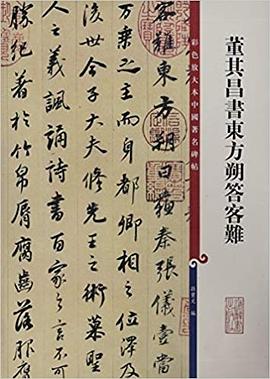 彩色放大本中國著名碑帖
董其昌書東方朔答客難
孫寶文 編
客難東方朔曰蘇秦張儀壹當
萬乘之主而身都卿相之位澤及
後世今子大夫修先王之術慕聖
人之義諷誦詩書百家之言不可
勝紀著於竹帛脣腐齒落服膺